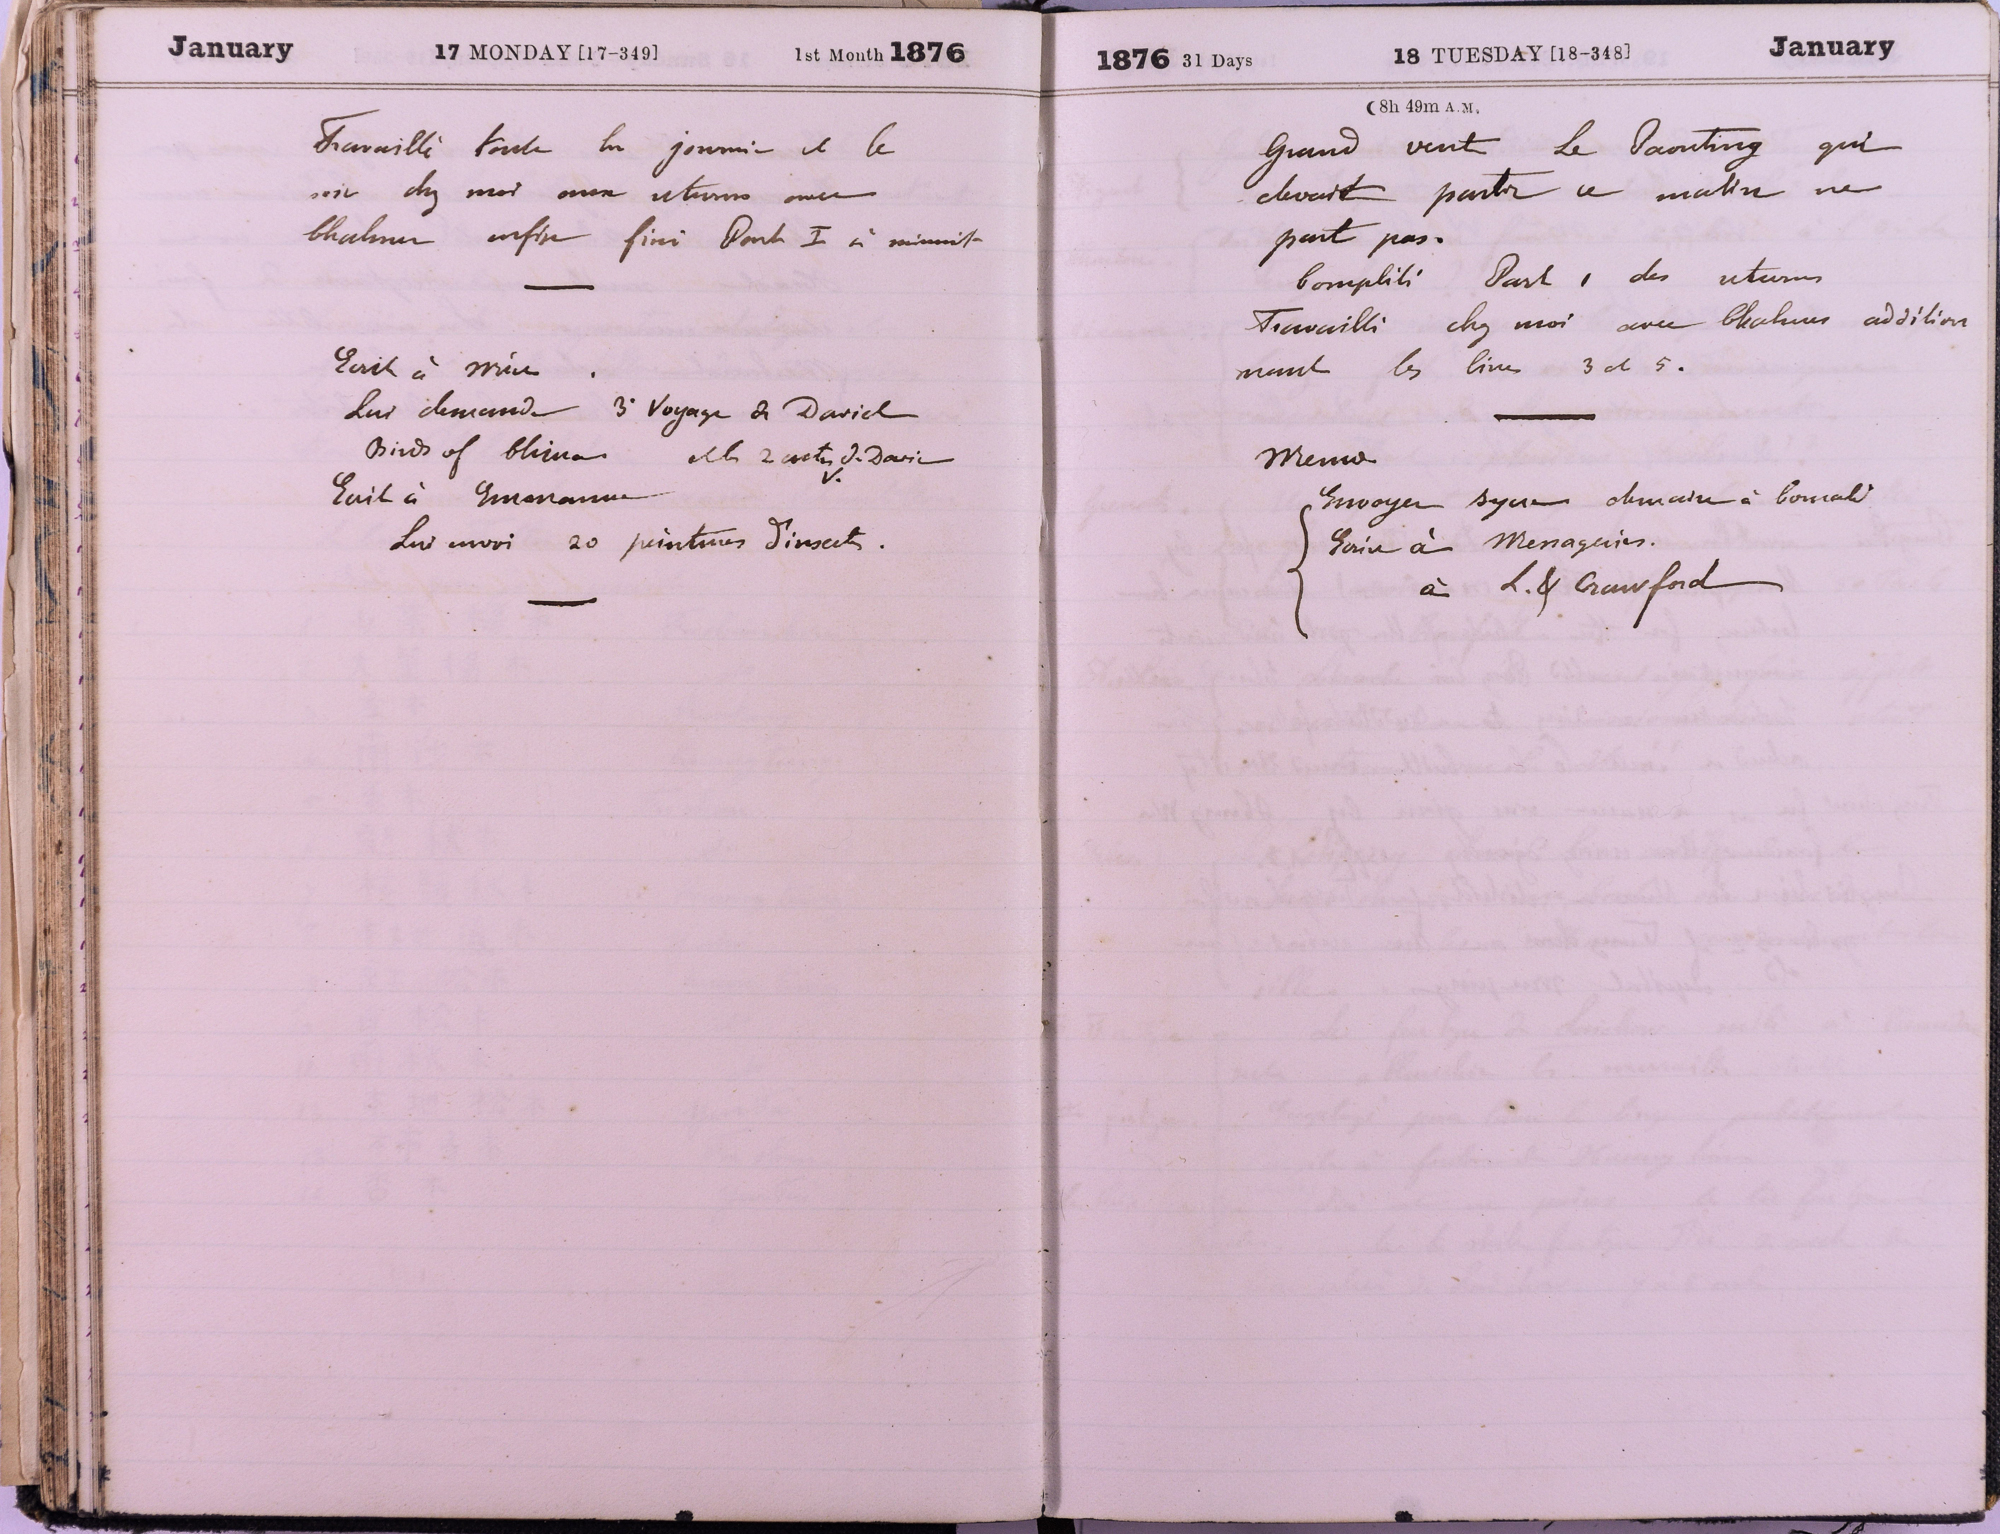 January 17 MONDAY [17-349] 1st Month 1876
Travaillé toute la journée et le
soir chez moi aux returns avec
Chalmer enfin fini Part I à minuit
Ecrit à Mère.
Lui demande 3e Voyage de David
Birds of China et les 2 cartes de David
Ecrit à Emmanuel
Lui envoi 20 peintures d'insectes.
1876 31 Days 18 TUESDAY [18-348] January
☾ 8h 49m A.M.
Grand vent Le Paouting qui
devait partir ce matin ne
part pas.
Complété Part 1 des returns
Travaillé chez moi avec Chalmers addition
nant les lines 3 et 5.
Memo
Envoyer demain à
Ecrire à Messageries.
à L. & Crawford